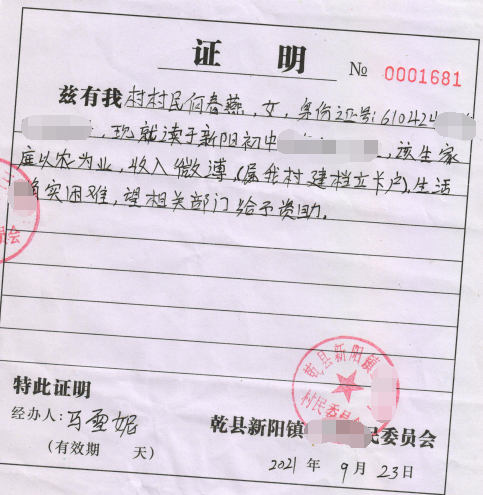 证 明
№ 0001681
兹有我村村民何春燕,女,身份证号:610424
,现就读于新阳初中,该生家
庭以农为业,收入微薄(属我村建档立卡户),生活
确实困难,望相关部门给予资助。
员会
乾县新阳镇
村民委员
特此证明
经办人:马雪妮
(有效期 天)
乾县新阳镇 民委员会
2021 年 9 月 23 日